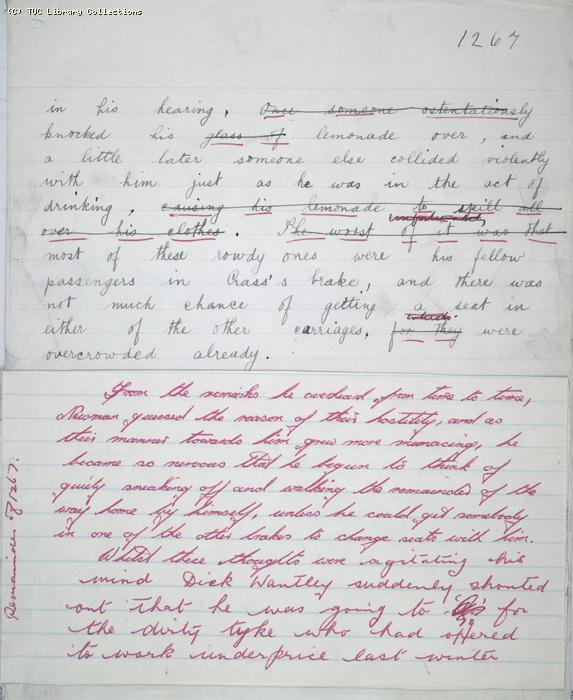 (C) TUC Library Collections
1267
in his hearing. Once someone ostentatiously
knocked his glass of lemonade over, and
a little later someone else collided violently
with him just as he was in the act of
drinking, causing his lemonade to spill all
unfortunately
over his clothes. The worst of it was that
most of these rowdy ones were his fellow
passengers in Crass's brake, and there was
not much chance of getting a seat in
either of the other carriages, for they were
which
overcrowded already.
From the remarks he overheard from time to time,
Newman guessed the reason of their hostility, and as
their manner towards him grew more menacing, he
became so nervous that he began to think of
quietly sneaking off and walking the remainder of the
way home by himself, unless he could get somebody
in one of the other brakes to change seats with him.
Whilst these thoughts were agitating his
mind Dick Wantley suddenly shouted
out that he was going to go for
the dirty tyke who had offered
to work underprice last winter
Remainder of 1267.